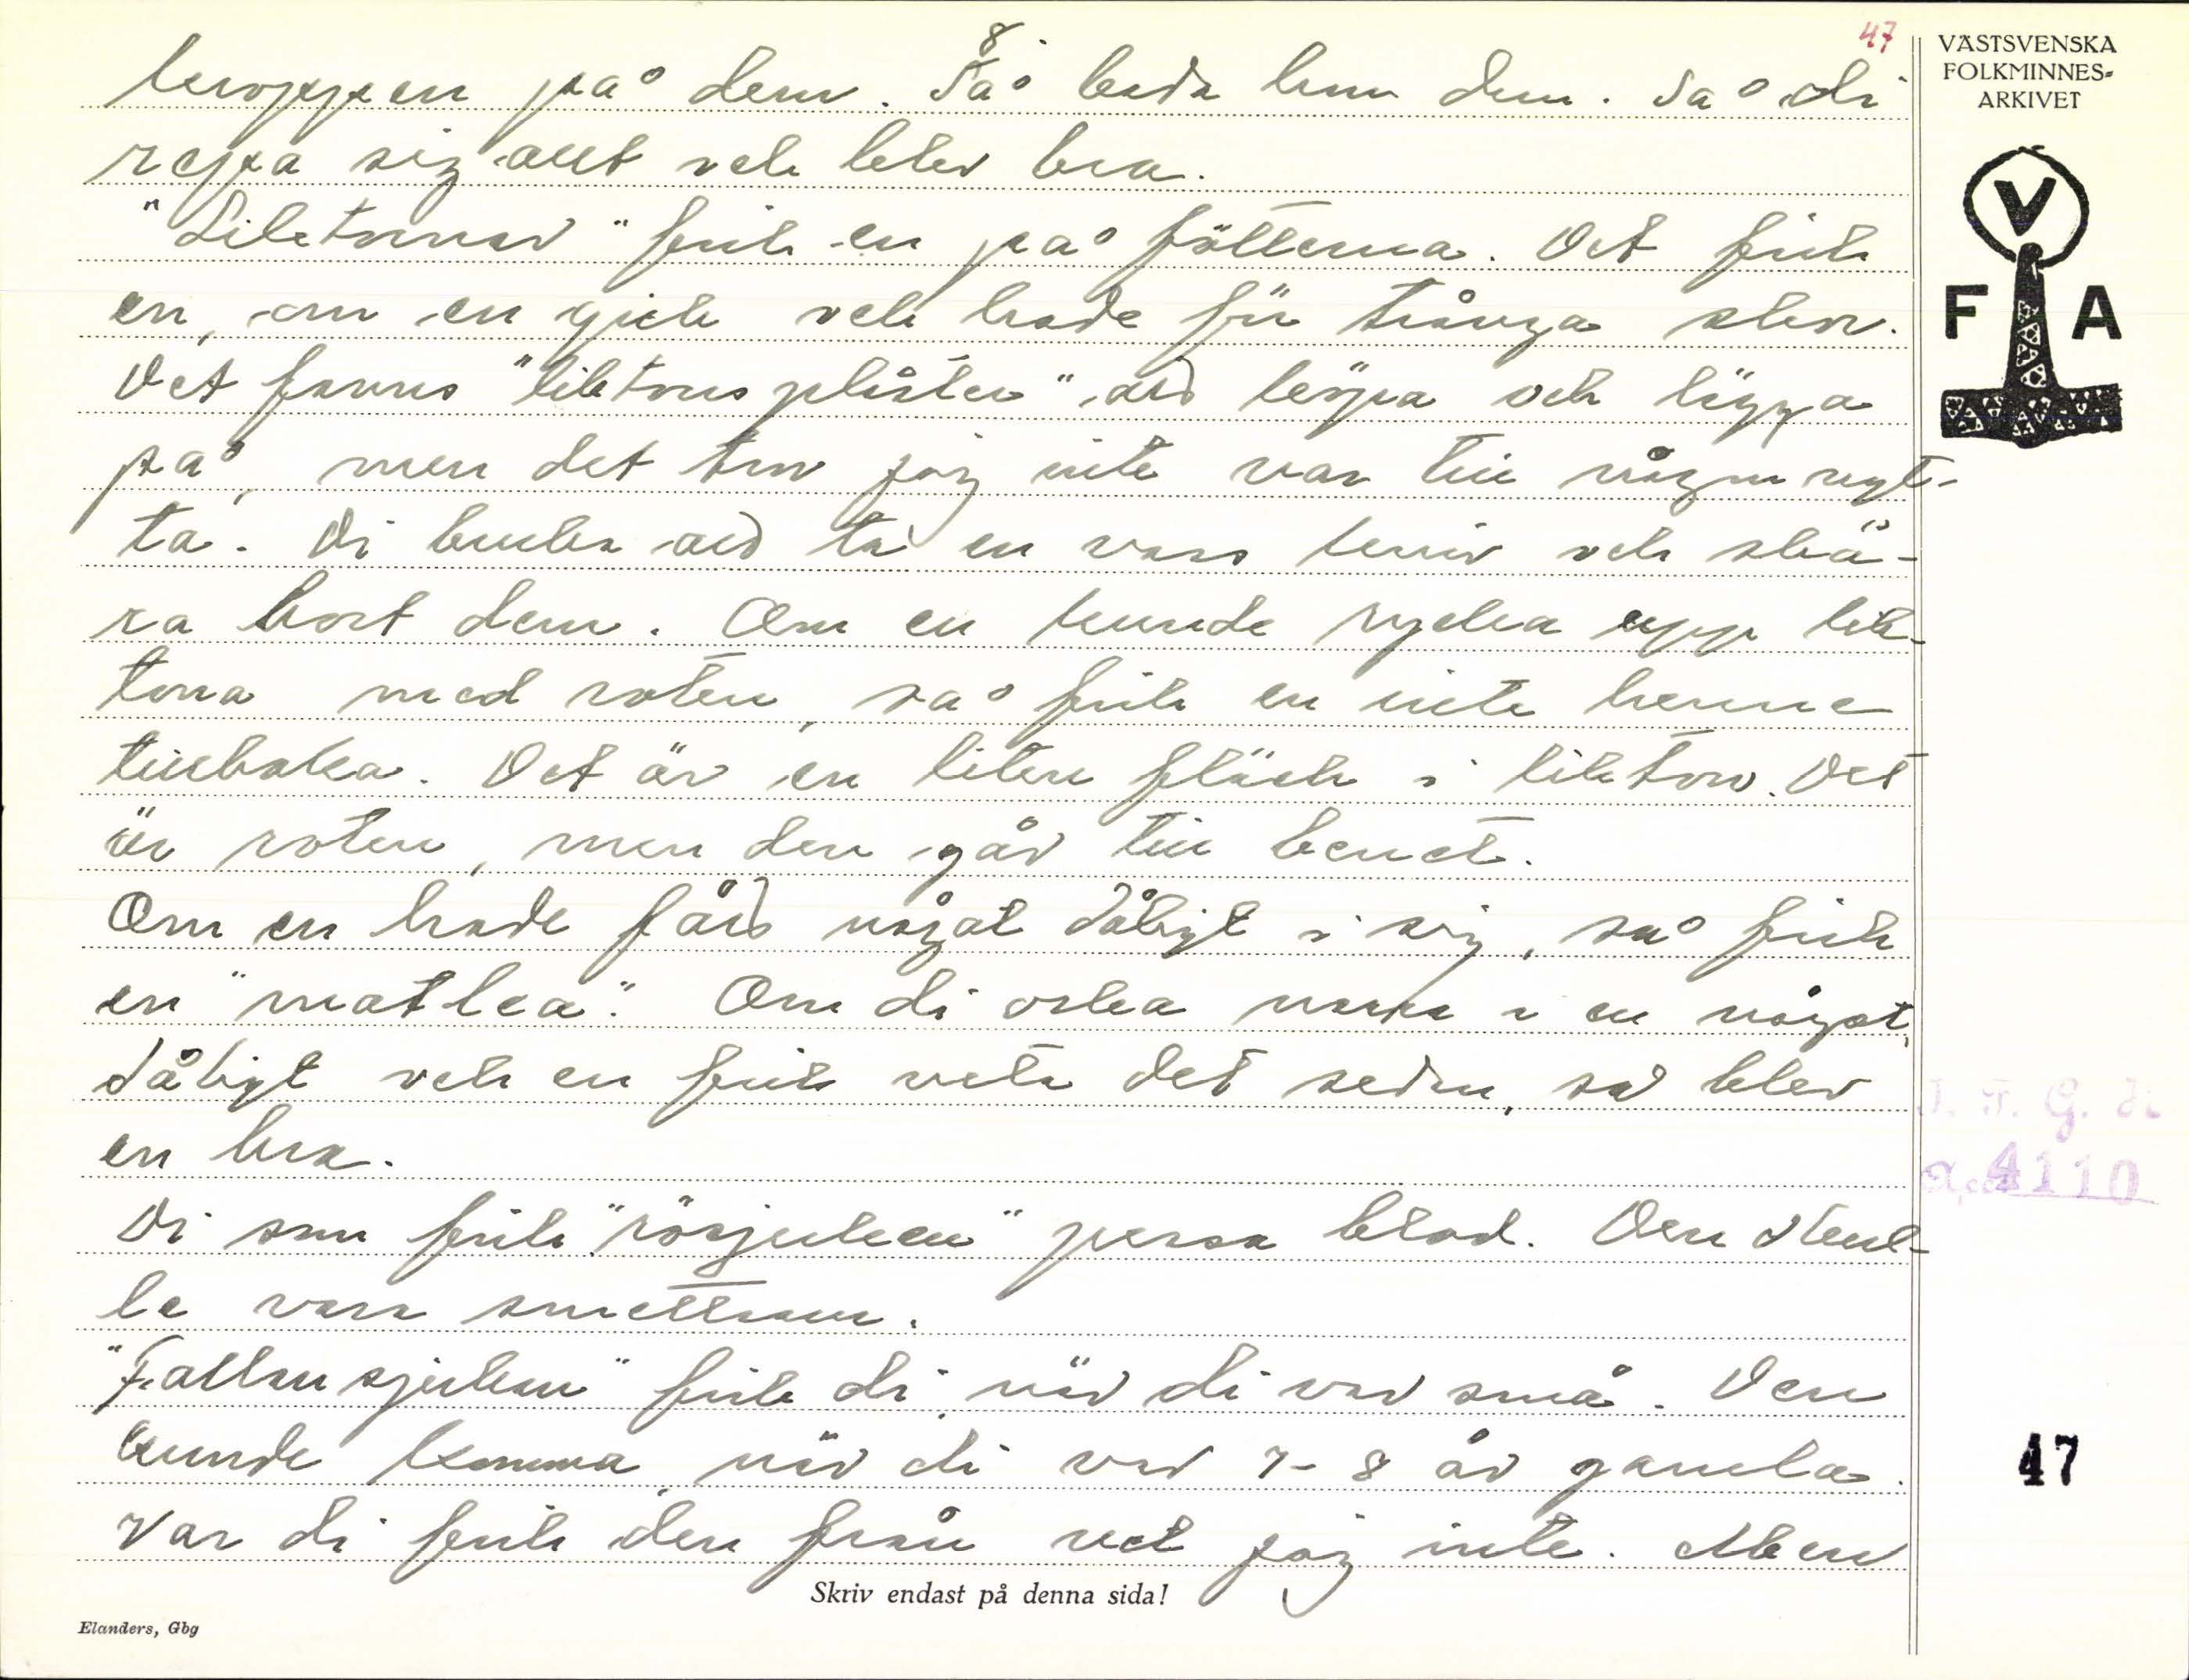 8
47
kroppen på dem. Så bada hon dem. Så di
repa sig allt och blev bra.
"Liktornar" fick en på fötterna. Det fick
en, om en gick och hade för trånga skor.
Det fanns "liktornsplåster" att köpa och lägga
på, men det tror jag inte var till någon nyt-
ta. Di bruka att ta en vass kniv och skä-
ra bort dem. Om en kunde rycka upp lik-
torna med roten, så fick en inte henne
tillbaka. Det är en liten fläck i liktorn. Det
är roten, men den går till benet.
Om en hade fått något dåligt i sig, så fick
en "matlea". Om di orka i en något
dåligt och en fick veta det sedan, så blev
en bra.
Di som fick "rösjuken" blod. Den skul-
le vara smettsam.
"Fallnsjuken" fick di, när di var små. Den
kunde komma, när di var 7-8 år gamla.
Var di fick den från vet jag inte. Men
Skriv endast på denna sida!
Elanders, Gbg
VÄSTSVENSKA
FOLKMINNES-
ARKIVET
V
F A
I. F. G. H.
Acc. 4110
47